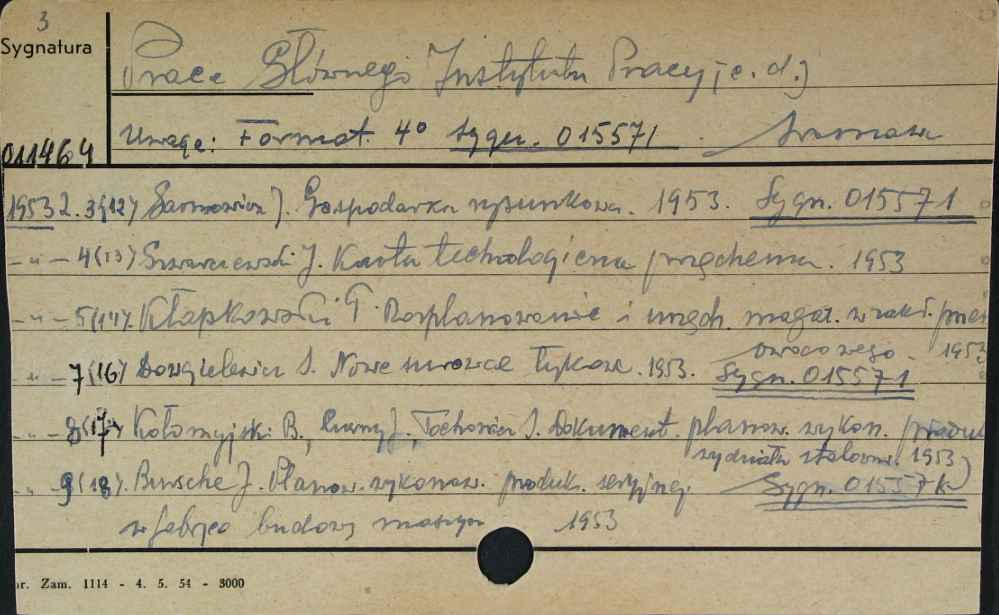 3
Sygnatura
Prace Głównego Instytutu Pracy (c. d.)
011464
Uwaga: Format. 4° sygn. 015571
1953 2. 3(12) J. Gospodarka rysunkowa. 1953. Sygn. 015571
- " - 4(13) J. Karta technologiczna 1953
- " - 5(14). Kłapkowski T. Rozplanowanie i urządz. magaz. w zakł. przet
owocowego. 1953
- " - 7(16) Dowgielewicz S. Nowe surowce łykowe. 1953. Sygn. 015571
- " - 8(17) Kołomyjski B., J., Tochowicz S. Dokument. planow. wykon. produk
wydziału stalown. 1953)
- " - 9(18). Bursche J. Planow. wykonaw. produk. seryjnej Sygn. 015571
w fabryce budowy maszyn 1953
nr. Zam. 1114 - 4. 5. 54 - 3000